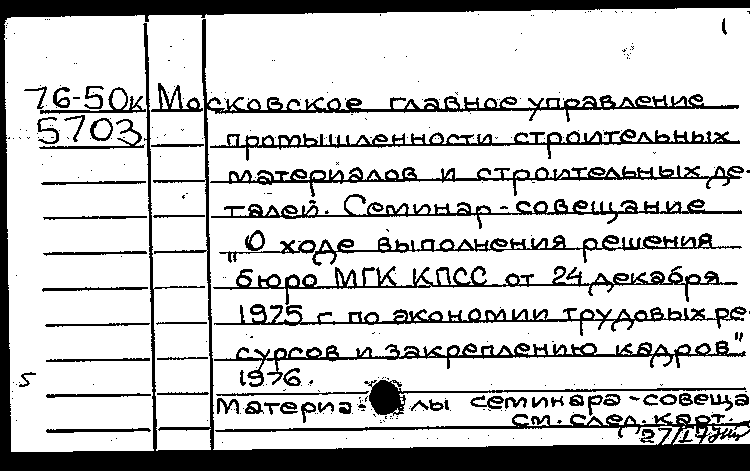 1
76-50к Московское главное управление
5703 промышленности строительных
материалов и строительных де-
талей. Семинар-совещание
„О ходе выполнения решения
бюро МГК КПСС от 24 декабря
1975 г. по экономии трудовых ре-
сурсов и закреплению кадров"
1976.
5
Материа- лы семинара-совеща
см. след. карт.